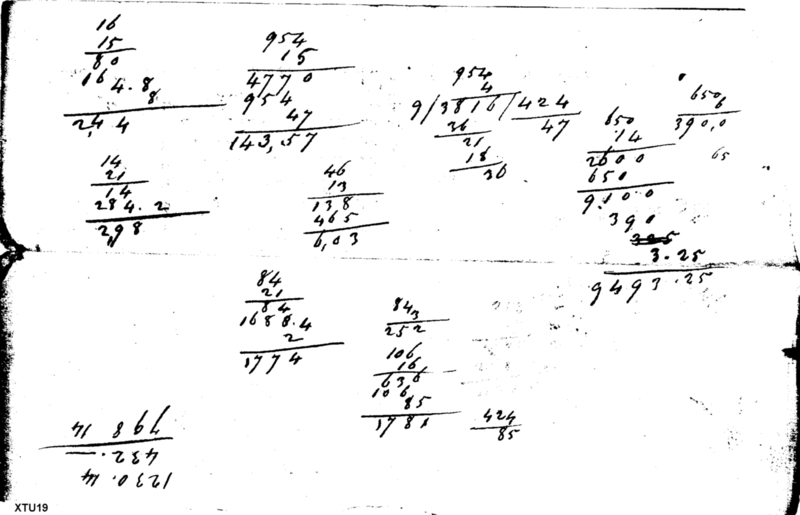 16
15
80
16
4.8
8
2,4 4
954
15
4770
954
47
143,57
954
4
9/3816/424
36 47
21
18
36
650
14
2600
650
9100
390
3.25
9493.25
650
6
390,0
65
14
21
14
284.2
298
46
13
138
465
6,03
84
21
84
168 8.4
2
1774
84
3
252
106
16
636
106
85
1781
424
85
798 14
432.—
1230.14
XTU19